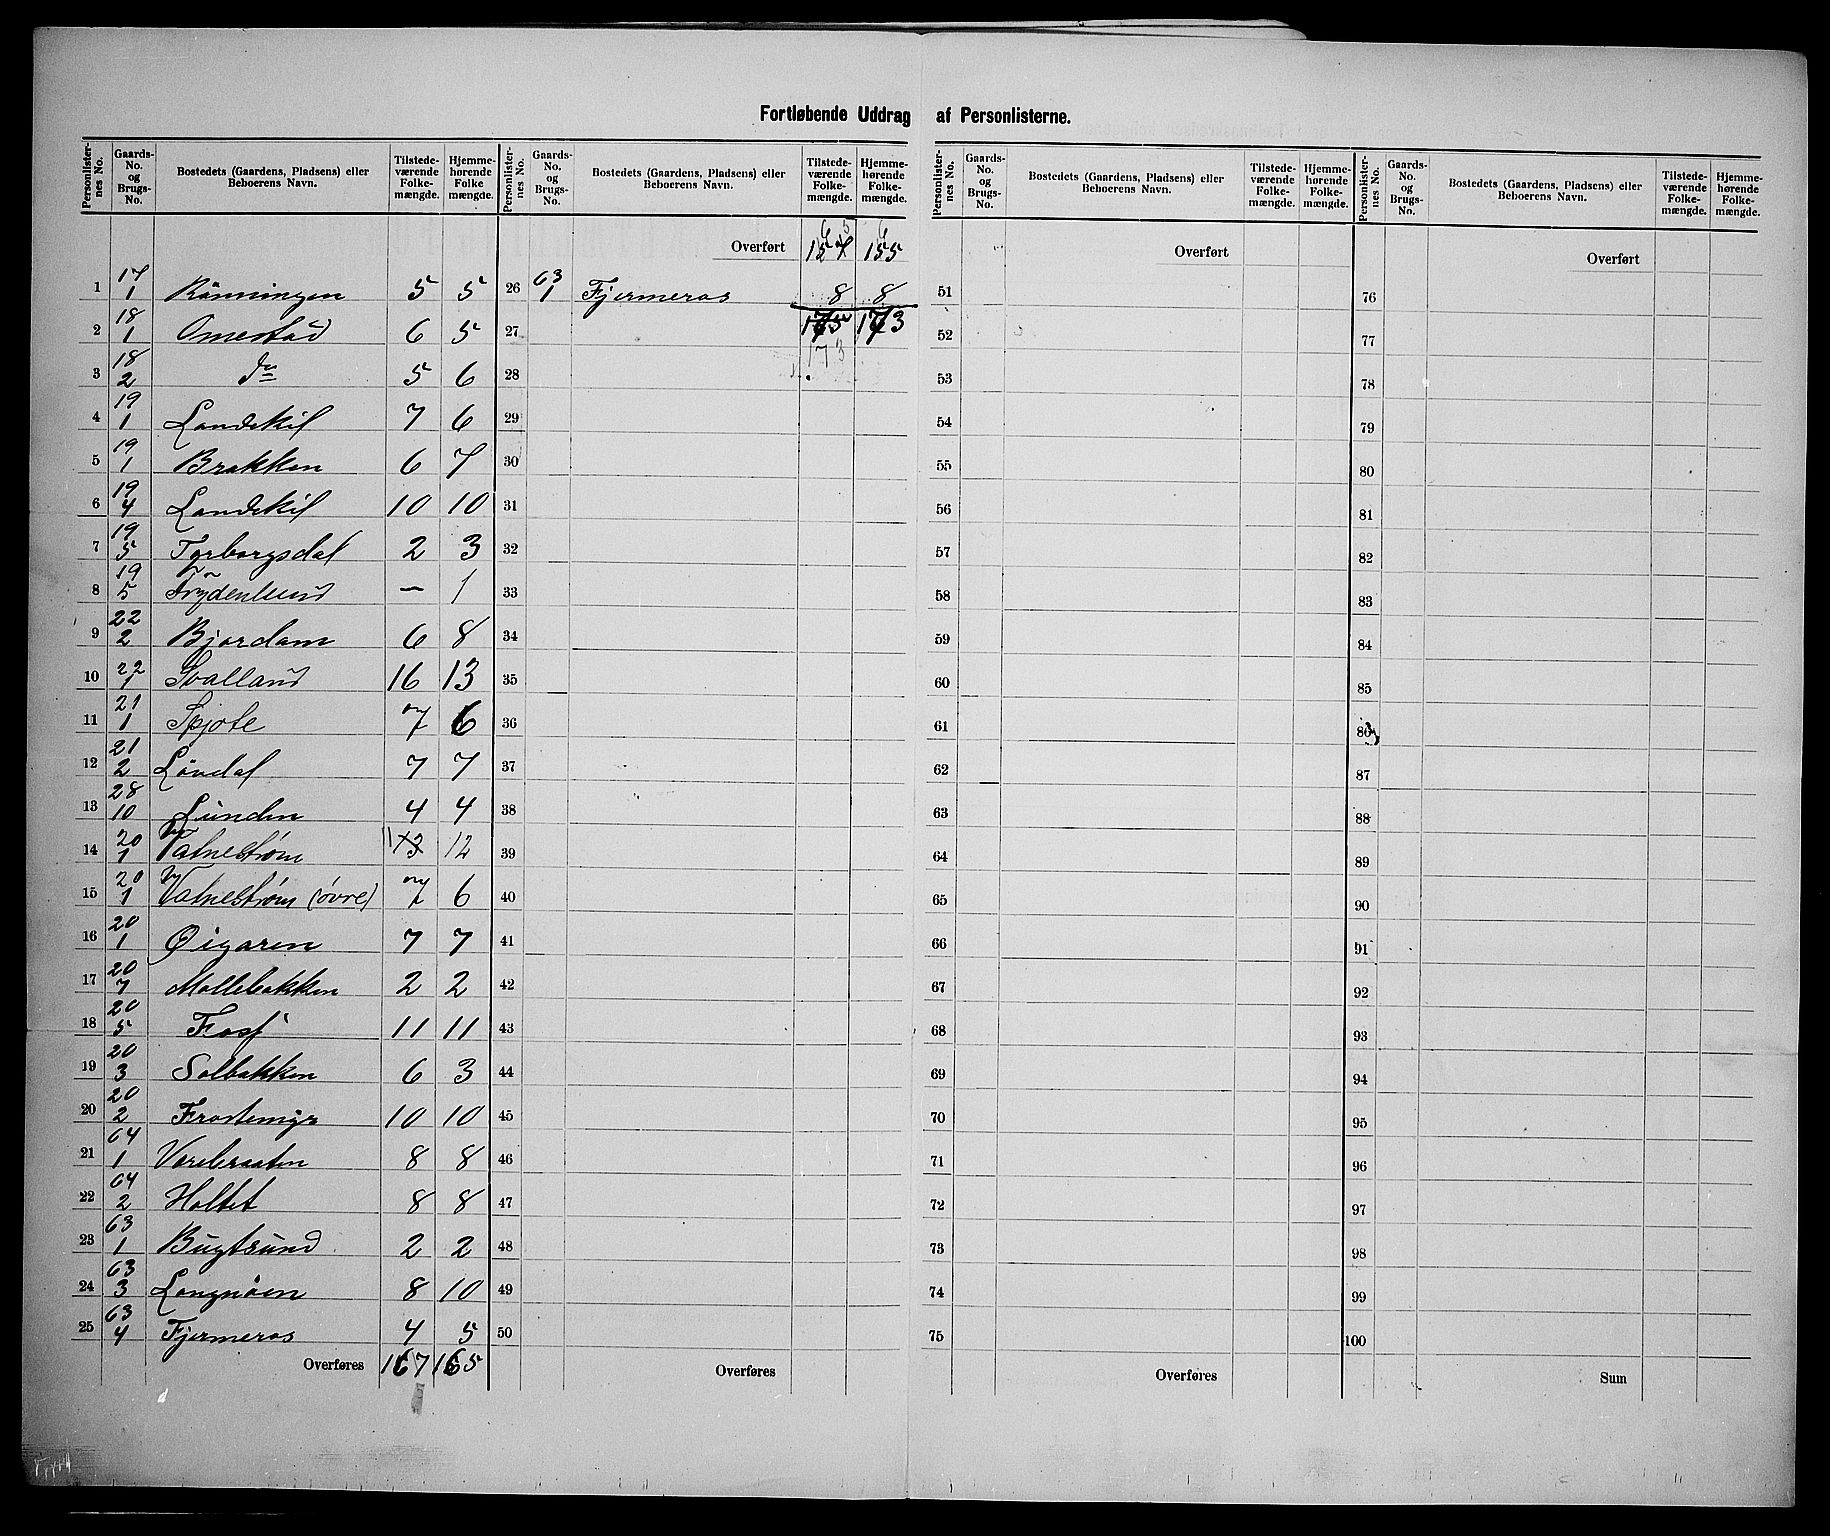 Fortløbende Uddrag af Personlisterne.
Personlister-nes No. | Gaards-No. og Brugs-No. | Bostedets (Gaardens, Pladsens) eller Beboerens Navn. | Tilstede-værende Folke-mængde. | Hjemme-hørende Folke mængde.
1 | 17 1 | Rønningen | 5 | 5
2 | 18 1 | Omestad | 6 | 5
3 | 18 2 | do | 5 | 6
4 | 19 1 | Landskil | 7 | 6
5 | 19 1 | Brakken | 6 | 7
6 | 19 4 | Landskil | 10 | 10
7 | 19 5 | Torborgsdal | 2 | 3
8 | 19 5 | Frydenlund | — | 1
9 | 22 2 | Bjordam | 6 | 8
10 | 22 1 | Svalland | 16 | 13
11 | 21 1 | Spjote | 7 | 6
12 | 21 2 | Løvdal | 7 | 7
13 | 28 10 | Lunden | 4 | 4
14 | 20 1 | Vatnestrøm | | 12
15 | 20 1 | Vatnestrøm (øvre) | 7 | 6
16 | 20 1 | Øigaren | 7 | 7
17 | 20 7 | Mollebakken | 2 | 2
18 | 20 5 | Fosf | 11 | 11
19 | 20 3 | Solbakken | 6 | 3
20 | 20 2 | Frostemyr | 10 | 10
21 | 64 1 | Varebraaten | 8 | 8
22 | 64 2 | Holtet | 8 | 8
23 | 63 1 | Bugtsund | 2 | 2
24 | 63 3 | Langmoen | 8 | 10
25 | 63 4 | Fjermeros | 4 | 5
Overføres 167 165
Personlister-nes No. | Gaards-No. og Brugs-No. | Bostedets (Gaardens, Pladsens) eller Beboerens Navn. | Tilstede-værende Folke-mængde. | Hjemme-hørende Folke-mængde.
Overført 157 155
26 | 63 1 | Fjermeros | 8 | 8
27 | 175 | 173
28 173
29
30
31
32
33
34
35
36
37
38
39
40
41
42
43
44
45
46
47
48
49
50
Overføres
Personlister-nes No. | Gaards-No. og Brugs-No. | Bostedets (Gaardens, Pladsens) eller Beboerens Navn. | Tilstede-værende Folke-mængde. | Hjemme-hørende Folke-mængde.
Overført
51
52
53
54
55
56
57
58
59
60
61
62
63
64
65
66
67
68
69
70
71
72
73
74
75
Overføres
Personlister-nes No. | Gaards-No. og Brugs-No. | Bostedets (Gaardens, Pladsens) eller Beboerens Navn. | Tilstede-værende Folke-mængde. | Hjemme-hørende Folke-mængde.
Overført
76
77
78
79
80
81
82
83
84
85
86
87
88
89
90
91
92
93
94
95
96
97
98
99
100
Sum